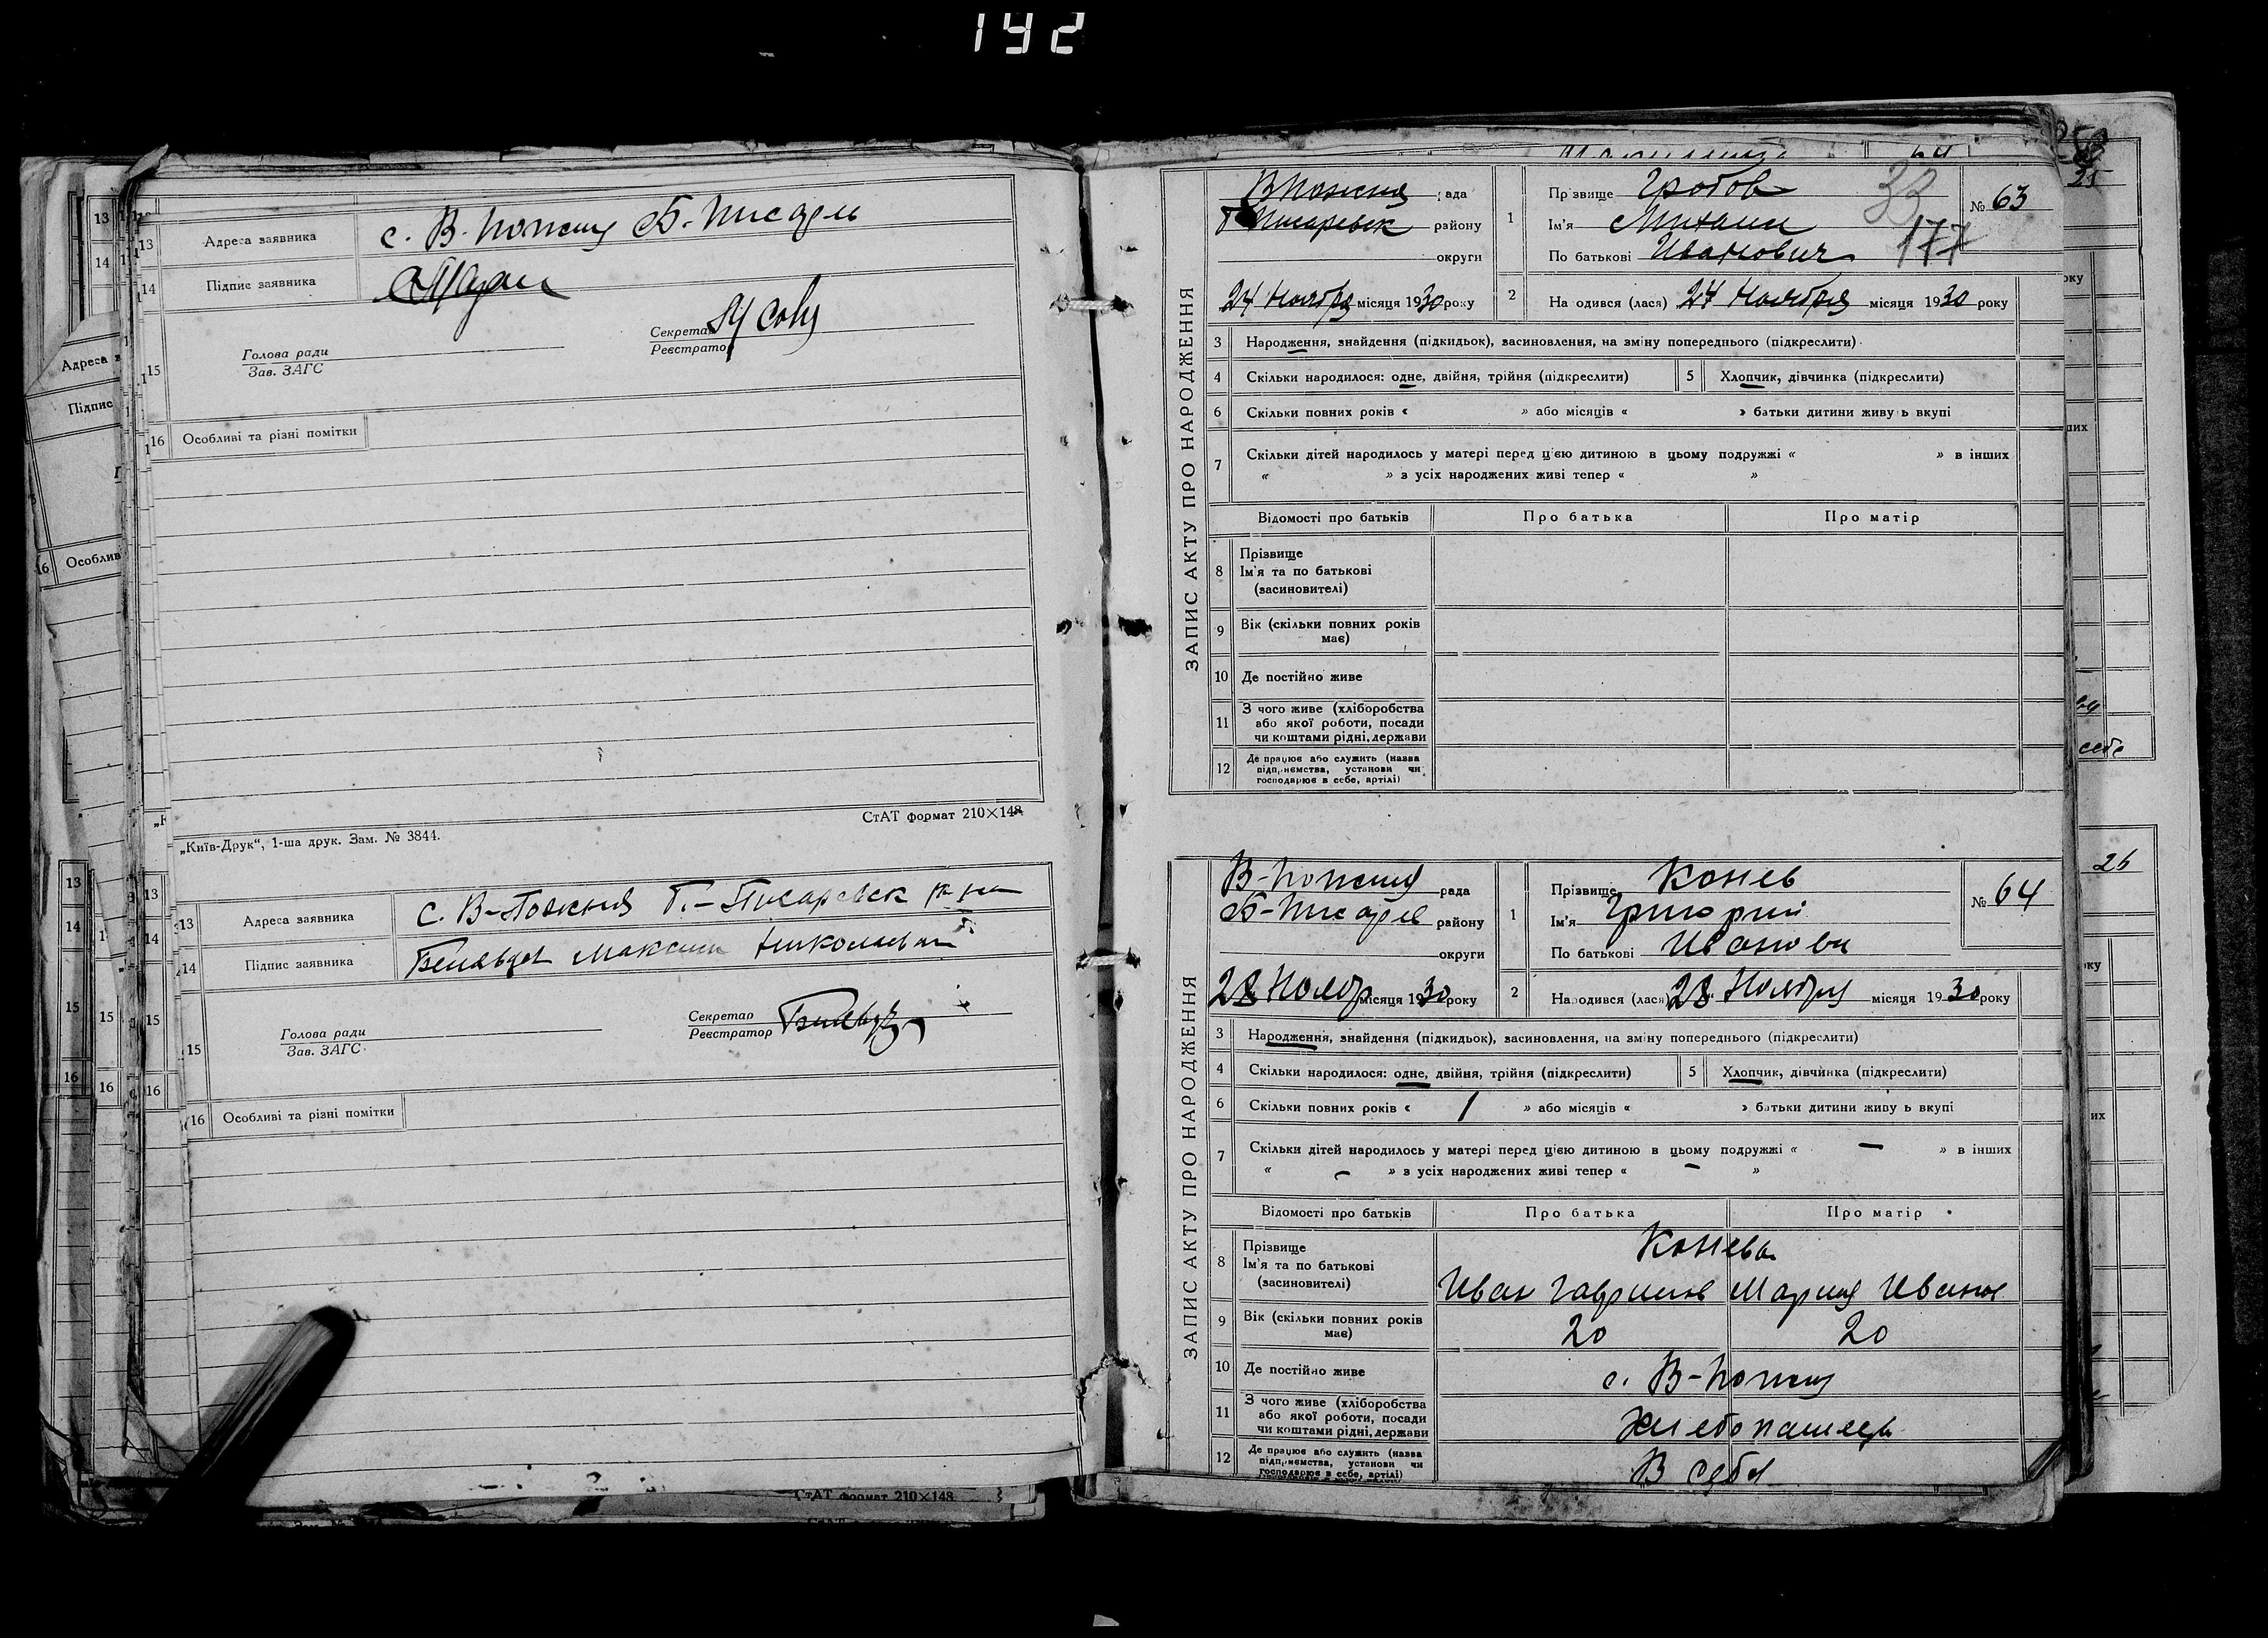 192
13 Адреса заявника с. В. Пожня Б. Писарев
14 Підпис заявника
15 Голова ради Секретар
Зав. ЗАГС Реєстратор
16 Особливі та різні помітки
СтАТ формат 210×148
„Київ-Друк“, 1-ша друк. Зам. № 3844.
13 Адреса заявника с. В-Пожня Б.-Писаревск р-на
14 Підпис заявника Максим Николаевич
15 Голова ради Секретар
Зав. ЗАГС Реєстратор
16 Особливі та різні помітки
СтАТ формат 210×148
ЗАПИС АКТУ ПРО НАРОДЖЕННЯ
В Пожня рада
Б Писаревск району
округи
24 Ноября місяця 1930 року
1 Прізвище Гробов
Ім'я Михаил
По батькові Иванович
33
177
№ 63
2 Народився (лася) 24 Ноября місяця 1930 року
3 Народження, знайдення (підкидьок), засиновлення, на зміну попереднього (підкреслити)
4 Скільки народилося: одне, двійня, трійня (підкреслити) 5 Хлопчик, дівчинка (підкреслити)
6 Скільки повних років « » або місяців « » батьки дитини живуть вкупі
7 Скільки дітей народилось у матері перед цією дитиною в цьому подружжі « » в інших
« » з усіх народжених живі тепер « »
Відомості про батьків Про батька Про матір
8 Прізвище
Ім'я та по батькові
(засиновителі)
9 Вік (скільки повних років
має)
10 Де постійно живе
11 З чого живе (хліборобства
або якої роботи, посади
чи коштами рідні, держави
12 Де працює або служить (назва
підприємства, установи чи
господарює в себе, артілі)
ЗАПИС АКТУ ПРО НАРОДЖЕННЯ
В-Пожня рада
Б-Писарев району
округи
28 Ноябр місяця 1930 року
1 Прізвище Конев
Ім'я Григорий
По батькові Иванови
№ 64
2 Народився (лася) 28 Ноября місяця 1930 року
3 Народження, знайдення (підкидьок), засиновлення, на зміну попереднього (підкреслити)
4 Скільки народилося: одне, двійня, трійня (підкреслити) 5 Хлопчик, дівчинка (підкреслити)
6 Скільки повних років « 1 » або місяців « » батьки дитини живуть вкупі
7 Скільки дітей народилось у матері перед цією дитиною в цьому подружжі « — » в інших
« — » з усіх народжених живі тепер « — »
Відомості про батьків Про батька Про матір
8 Прізвище Конева
Ім'я та по батькові
(засиновителі) Иван Гаврилов Мария Иванов
9 Вік (скільки повних років
має) 20 20
10 Де постійно живе с. В-Пожня
11 З чого живе (хліборобства
або якої роботи, посади
чи коштами рідні, держави Хлебопашець
12 Де працює або служить (назва
підприємства, установи чи
господарює в себе, артілі) В себя